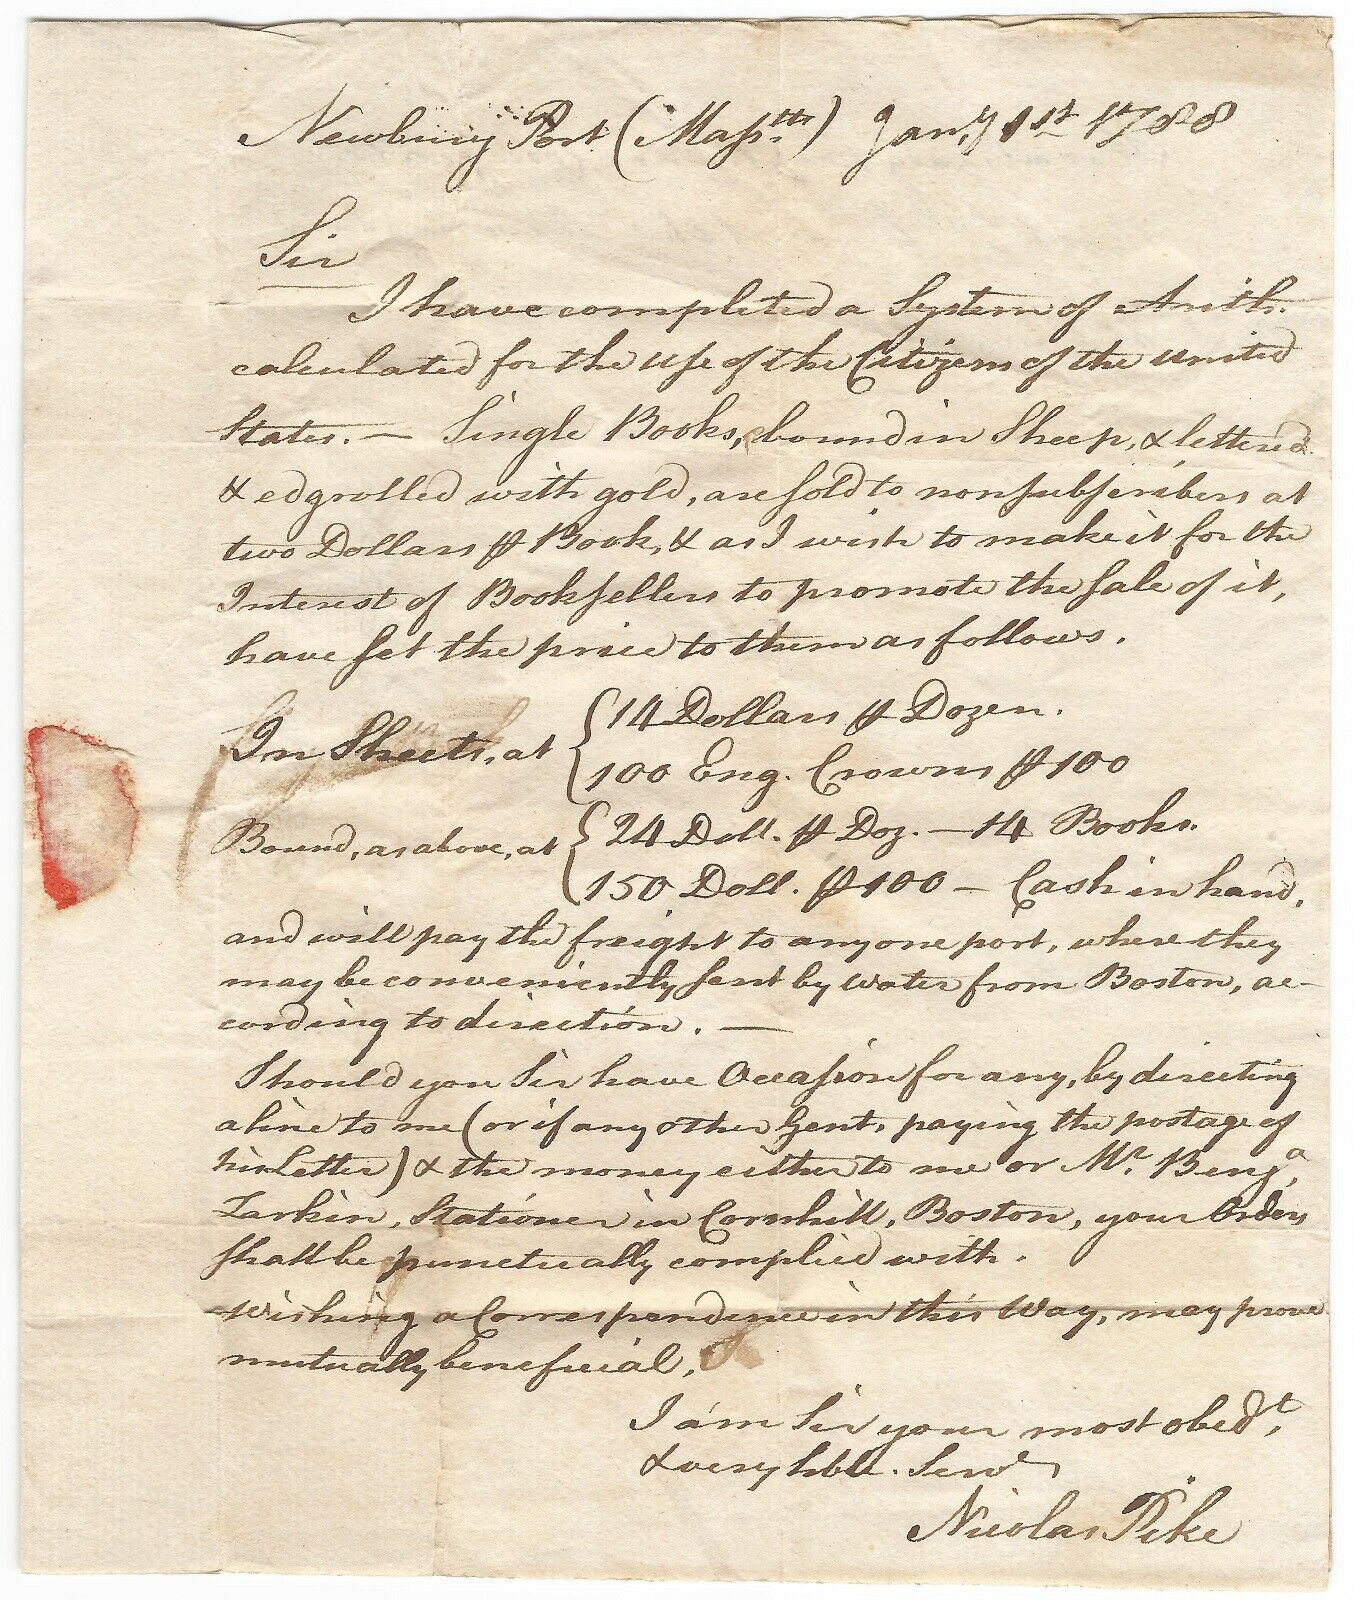 Newbury Port (Masstts) Jany 1st 1788
Sir
I have completed a System of Arith.
calculated for the use of the Citizens of the United
States. — Single Books, bound in Sheep, & lettered
& edgrolled with gold, are sold to nonsubscribers at
two Dollars ⅌ Book, & as I wish to make it for the
Interest of Booksellers to promote the sale of it,
have set the price to them as follows.
In Sheets, at { 14 Dollars ⅌ Dozen.
100 Eng. Crowns ⅌ 100
Bound, as above, at { 24 Doll. ⅌ Doz. — 14 Books.
150 Doll. ⅌ 100 — Cash in hand,
and will pay the freight to any one port, where they
may be conveniently sent by water from Boston, ac-
cording to direction. —
Should you Sir have Occasion for any, by directing
a line to me (or if any other Gent. paying the postage of
his Letter) & the money either to me or Mr. Benja.
Larkin, Stationer in Cornhill, Boston, your Orders
shall be punctually complied with.
Wishing a Correspondence in this Way, may prove
mutually beneficial,
I am Sir your most obedt.
& very hble. Servt
Nicolas Pike